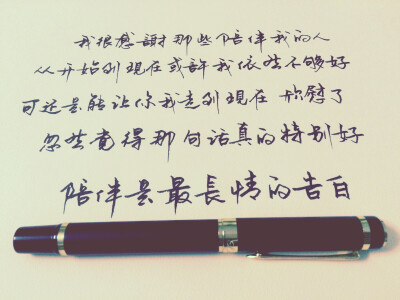 我很感謝那些陪伴我的人
从开始到现在或許我依然不够好
可还是能让你我走到现在 了
忽然覚得那句话真的特别好
陪伴是最長情的告白